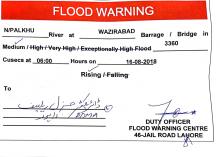 FLOOD WARNING
N/PALKHU River at WAZIRABAD Barrage / Bridge in
Medium / High / Very High / Exceptionally High Flood 3360
Cusecs at 06:00 Hours on 16-08-2018
Rising / Falling
To
DUTY OFFICER
FLOOD WARNING CENTRE
46-JAIL ROAD LAHORE